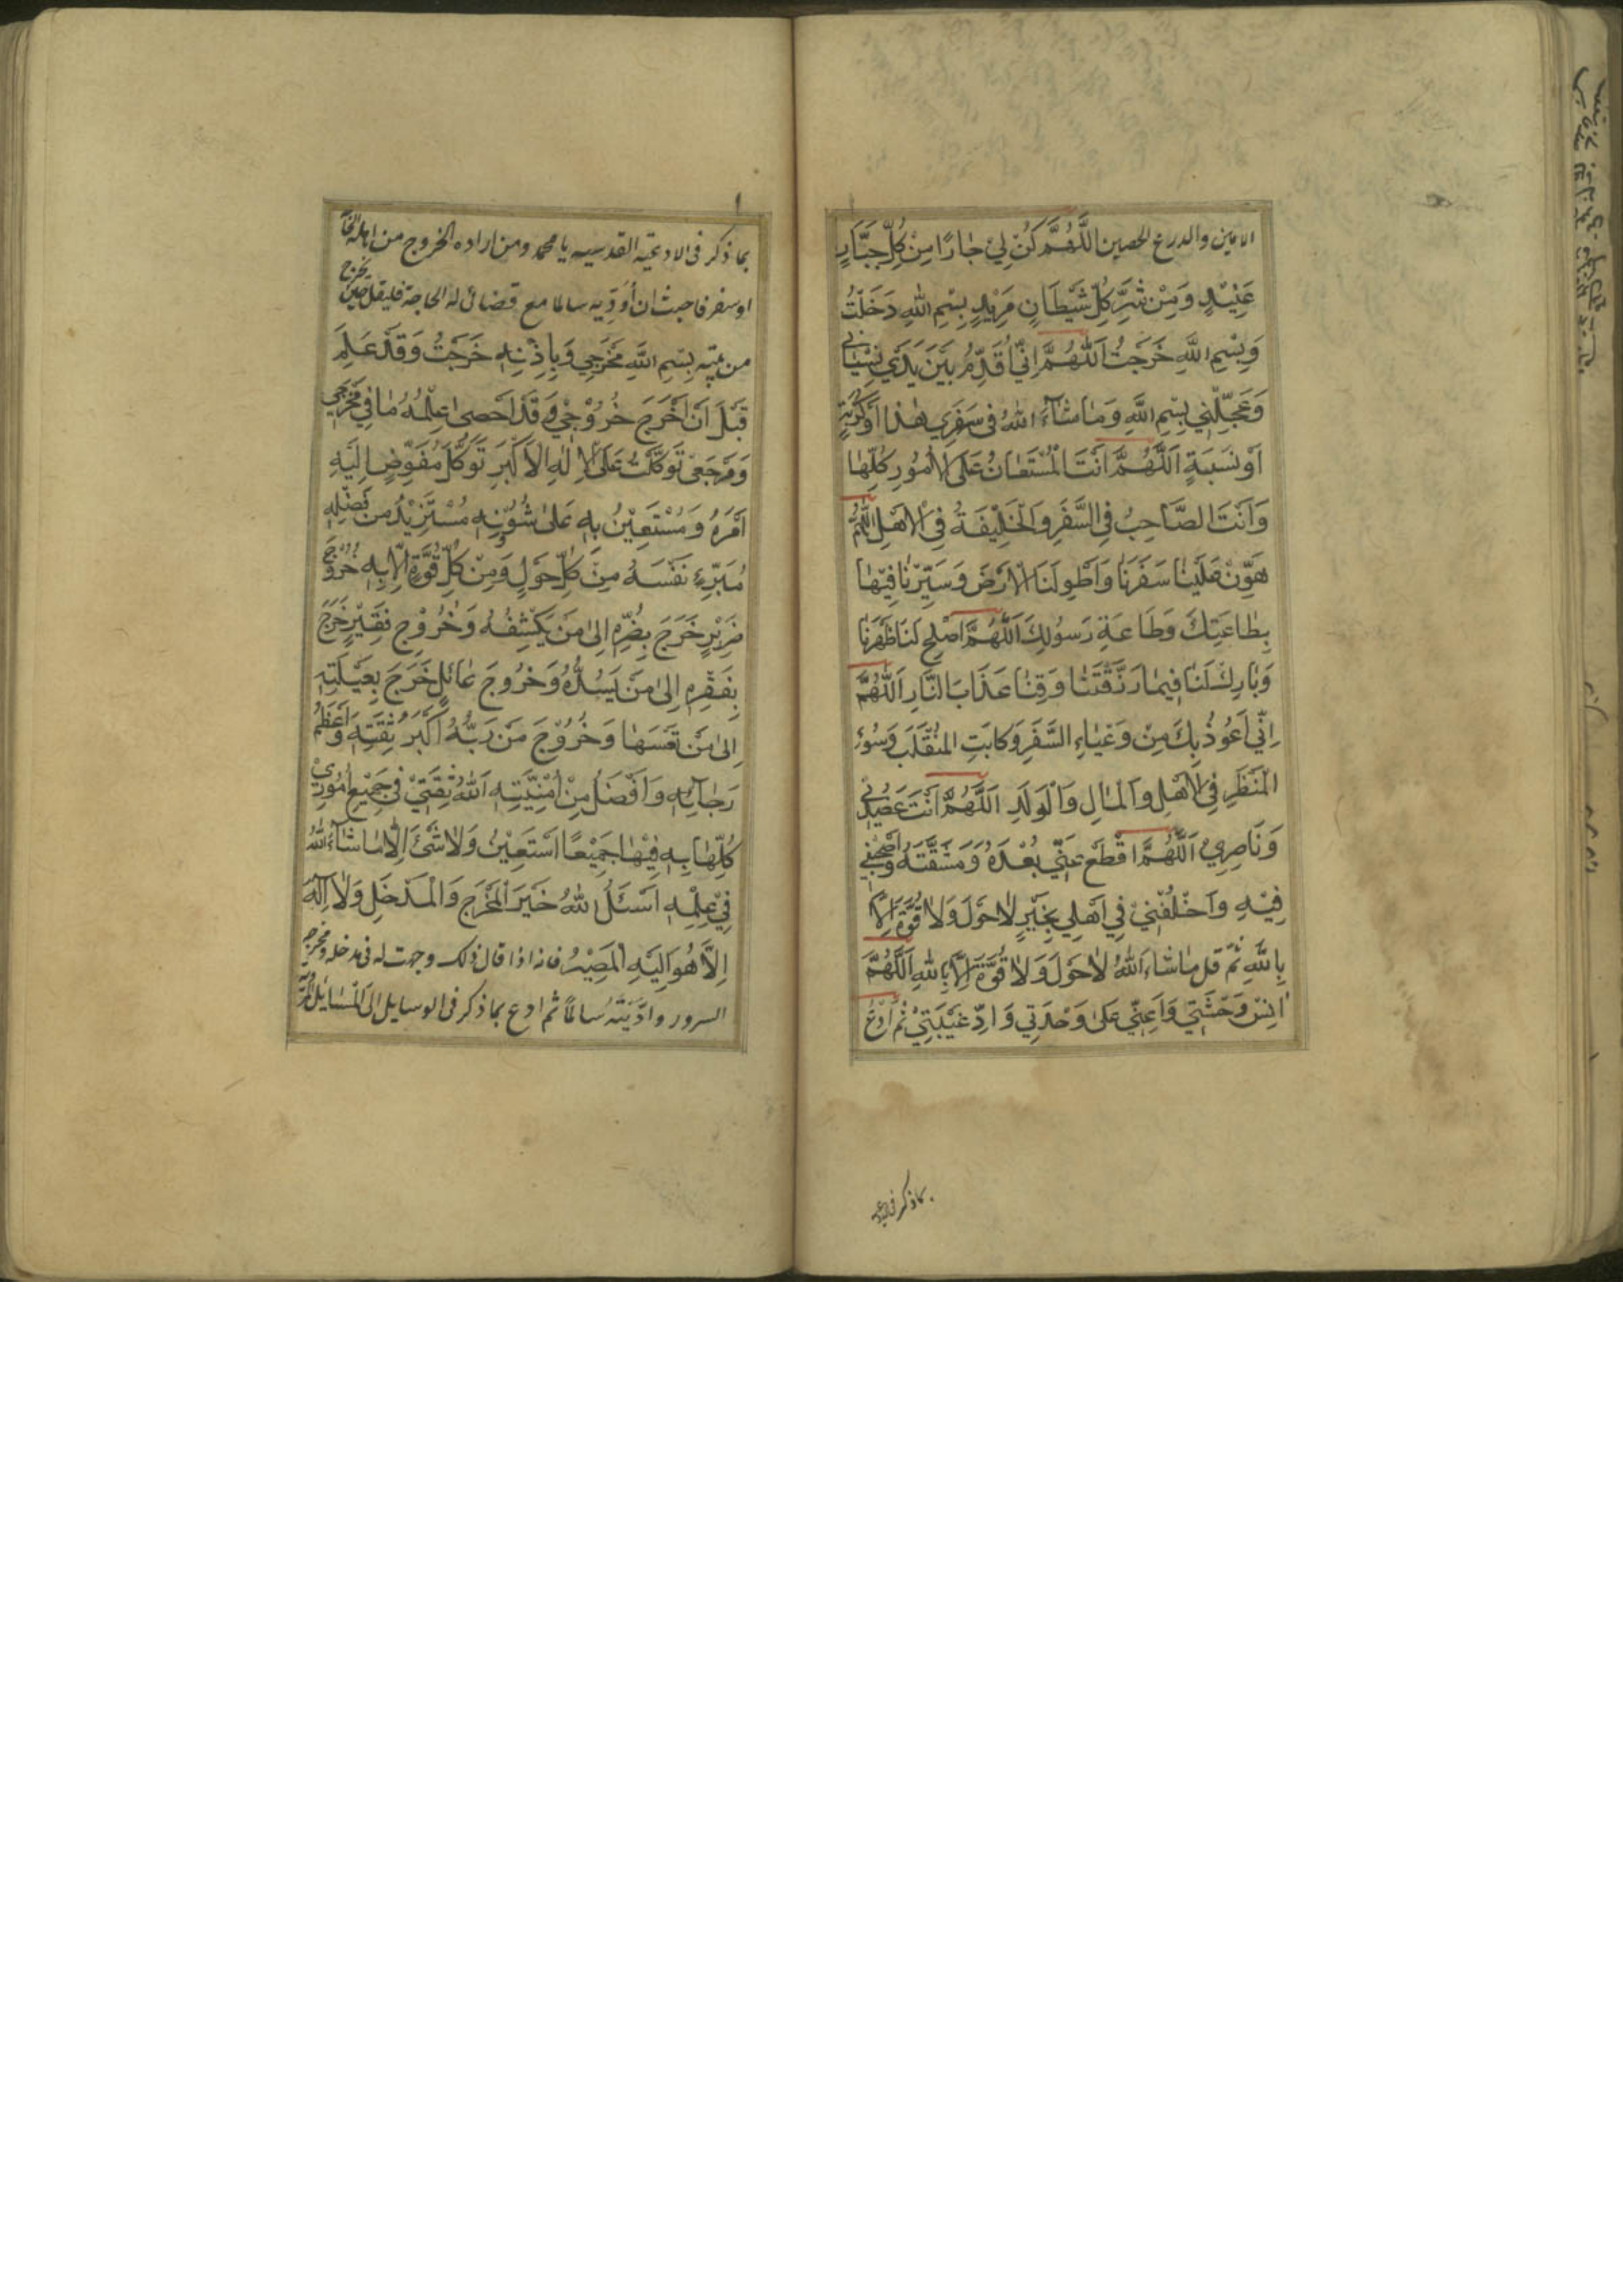 الامان والدرع الحصين اللَّهُمَّ كُنْ لِي جَارًا مِنْ كُلِّ جَبَّارٍ
عَنِيْدٍ وَمِنْ شَرِّ كُلِّ شَيْطَانٍ مَرِيْدٍ بِسْمِ اللهِ دَخَلْتُ
وَبِسْمِ اللهِ خَرَجْتُ اَللّٰهُمَّ اِنّي اُقَدِّمُ بَيْنَ يَدَيْ نِسْيَانِي
وَعَجَلَتِي بِسْمِ اللهِ وَمَا شَآءَ اللهُ فِى سَفَرِي هٰذَا اَوْ ذَكَرْتُهُ
اَوْ نَسِيتُهُ اَللّٰهُمَّ اَنْتَ الْمُسْتَعَانُ عَلَى الاُمُورِ كُلِّهَا
وَاَنْتَ الصَّاحِبُ فِي السَّفَرِ وَالْخَلِيْفَةُ فِي الْاَهْلِ اَللّٰهُمَّ
هَوِّنْ عَلَيْنَا سَفَرَنَا وَاطْوِ لَنَا الْاَرْضَ وَسَيِّرْنَا فِيْهَا
بِطَاعَتِكَ وَطَاعَةِ رَسُولِكَ اَللّٰهُمَّ اَصْلِحْ لَنَا ظَهْرَنَا
وَبَارِكْ لَنَا فِيمَا رَزَقْتَنَا وَقِنَا عَذَابَ النَّارِ اَللّٰهُمَّ
اِنِّي اَعُوذُ بِكَ مِنْ وَعْثَاءِ السَّفَرِ وَكابَتِ المُنْقَلَبِ وَسُوْءِ
الْمَنْظَرِ فِى الْاَهْلِ وَالْمَالِ وَالْوَلَدِ اَللّٰهُمَّ اَنْتَ عَضُدِيْ
وَنَاصِرِي اَللّٰهُمَّ اقْطَعْ عَنِّي بُعْدَهُ وَمَشَقَّتَهُ وَاصْحَبْنِي
فِيْهِ وَاخْلُفْنِيْ فِي اَهْلِي بِخَيْرٍ لَا حَوْلَ وَلَا قُوَّةَ اِلَّا
بِاللهِ ثُمَّ قل مَا شَاءَ اللهُ لَا حَوْلَ وَلَا قُوَّةَ اِلَّا بِاللهِ اَللّٰهُمَّ
انِسْ وَحْشَتِي وَاَعِنِّي عَلَى وَحْدَتِي وَادِّ غَيْبَتِيْ ثُمَّ ادْعُ
بما ذكر فى
بما ذكر فى الادعية القدسيه يا محمد ومن اراد الخروج من اهله لحاجة
او سفر فاحب ان أؤديه سالما مع قضائى له الحاجة فليقل حين يخرج
من بيته بِسْمِ اللهِ مَخْرَجِي وَبِاِذْنِهِ خَرَجْتُ وَقَدْ عَلِمَ
قَبْلَ اَنْ اَخْرُجَ خُرُوْجِيْ وَقَدْ اَحْصٰى عِلْمُهُ مَا فِي مَخْرَجِي
وَمَرْجَعِيْ تَوَكَّلْتُ عَلَى الْاِلٰهِ الْاَكْبَرِ تَوَكُّلَ مُفَوِّضٍ اِلَيْهِ
اَمْرَهُ وَمُسْتَعِيْنُ بِهِ عَلٰى شُؤُنِهِ مُسْتَزِيْدٌ مِنْ فَضْلِهِ
مُبَرِّءٍ نَفْسَهُ مِنْ كُلِّ حَوْلٍ وَمِنْ كُلِّ قُوَّةٍ اِلَّا بِهِ خُرُوْجَ
ضَرِيْرٍ خَرَجَ بِضُرِّهِ اِلٰى مَنْ يَكْشِفُهُ وَخُرُوْجَ فَقِيْرٍ خَرَجَ
بِفَقْرِهِ اِلٰى مَنْ يَسُدُّهُ وَخُرُوجَ عَائِلٍ خَرَجَ بِعَيْلَتِهِ
اِلٰى مَنْ وَخُرُوْجَ مَنْ رَبُّهُ اَكْبَرُ ثِقَتِهِ وَاَعْظَمُ
رَجَائِهِ وَاَفْضَلُ مِنْ اُمْنِيَّتِهِ اَللهُ ثِقَتِيْ فِي جَمِيْعِ اُمُوْرِيْ
كُلِّهَا بِهِ فِيْهَا جَمِيْعًا اَسْتَعِيْنُ وَلَا شَيْءَ اِلَّا مَا شَاءَ اللهُ
فِيْ عِلْمِهِ اَسْئَلُ اللهُ خَيْرَ الْمَخْرَجِ وَالْمَدْخَلِ وَلَا اِلٰهَ
اِلَّا هُوَ اِلَيْهِ الْمَصِيْرُ فانه اذا قال ذلك وجهت له فى مدخله ومخرجه
السرور وادَّيْتُهُ سالمًا ثم ادع بما ذكر فى الوسايل الى الْمَسَايِل